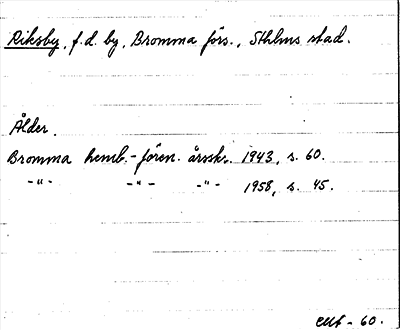 Riksby, f.d. by, Bromma förs., Sthlms stad.
Ålder.
Bromma hemb.-fören. årsskr. 1943, s. 60.
-"- -"- -"- 1958, s. 45.
- 60.